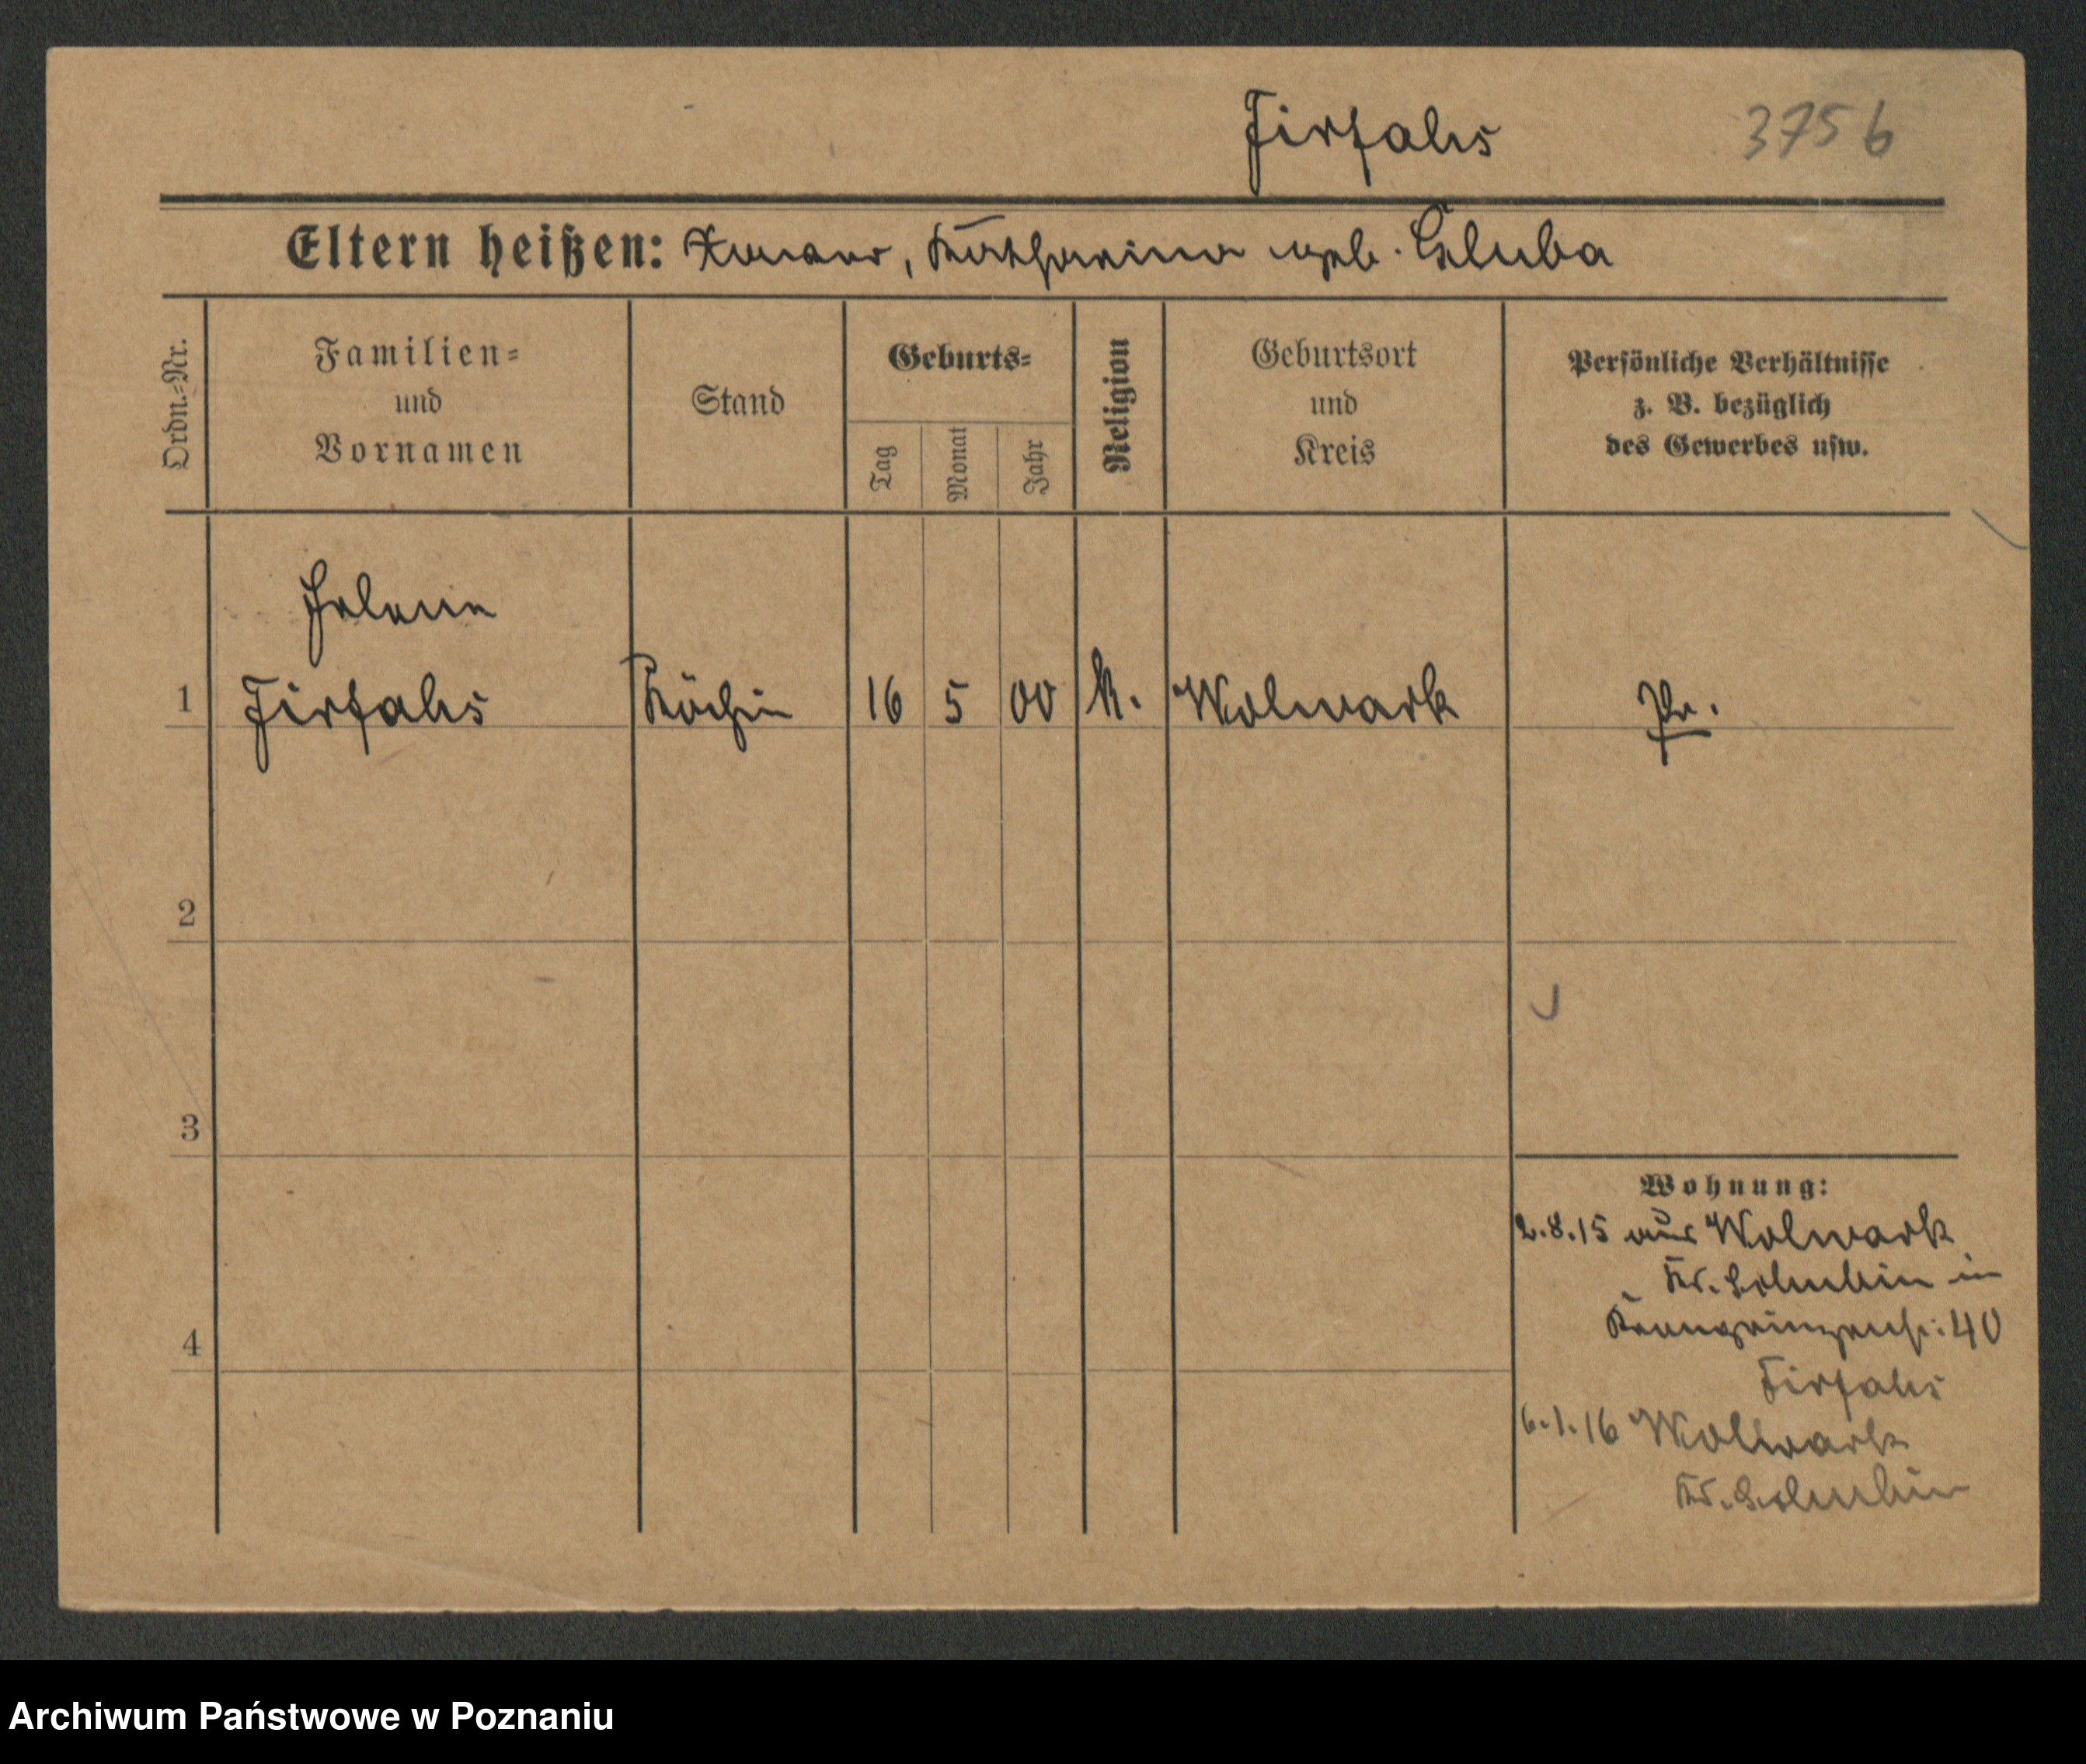 3756
Eltern heißen: Katharina geb. Gluba
Ordn.-Nr.
Familien-
und
Vornamen
Stand
Geburts-
Tag
Monat
Jahr
Religion
Geburtsort
und
Kreis
Persönliche Verhältnisse
z. B. bezüglich
des Gewerbes usw.
Helene
1 Köchin 16 5 00 k. Wolwark Pr.
2
3
4
Wohnung:
2.8.15 aus Wolwark
Kr. Schubin in
Kronprinzenstr: 40
6.1.16 Wollwark
Kr. Schubin
Archiwum Państwowe w Poznaniu